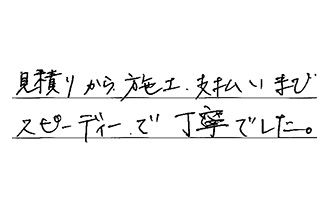 見積りから施工、支払いまで
スピーディーで丁寧でした。